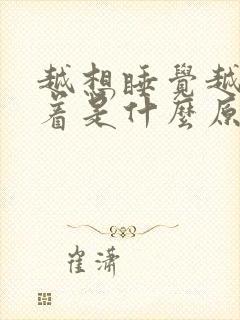 越想睡覺越
着是什麼原
崔潇